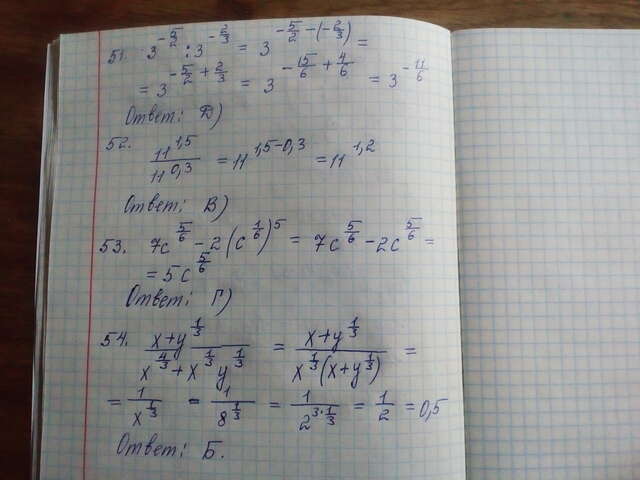 51. 3^(-5/2) : 3^(-2/3) = 3^(-5/2 - (-2/3)) =
= 3^(-5/2 + 2/3) = 3^(-15/6 + 4/6) = 3^(-11/6)
Ответ: Д)
52. 11^(1,5) / 11^(0,3) = 11^(1,5-0,3) = 11^(1,2)
Ответ: В)
53. 7c^(5/6) - 2(c^(1/6))^5 = 7c^(5/6) - 2c^(5/6) =
= 5c^(5/6)
Ответ: Г)
54. (x+y^(1/3)) / (x^(4/3) + x^(1/3) y^(1/3)) = (x+y^(1/3)) / (x^(1/3)(x+y^(1/3))) =
= 1/x^(1/3) = 1/8^(1/3) = 1/2^(3·1/3) = 1/2 = 0,5
Ответ: Б.